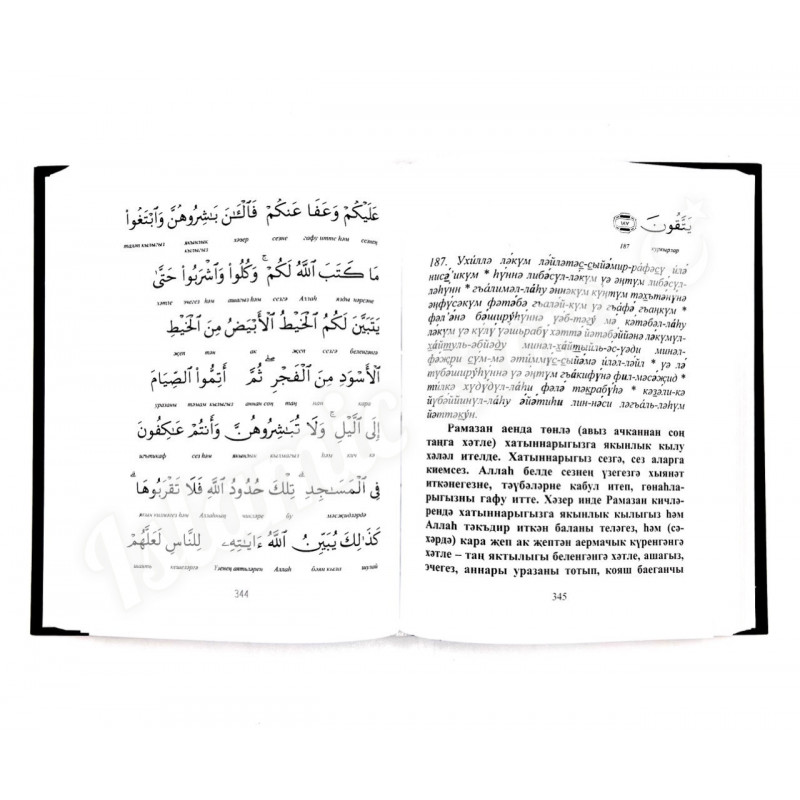 عَلَيْكُمْ وَعَفَا عَنكُمْ فَالْـَٰٔنَ بَاشِرُوهُنَّ وَابْتَغُوا
тәүбә кылыгыз якынлык хәзер сезне гафу итте һәм сезнең
кылыгыз
مَا كَتَبَ اللَّهُ لَكُمْ ۚ وَكُلُوا وَاشْرَبُوا حَتَّىٰ
хәтле эчегез һәм ашагыз сезгә Аллаһ язды нәрсәне
يَتَبَيَّنَ لَكُمُ الْخَيْطُ الْأَبْيَضُ مِنَ الْخَيْطِ
җеп тән ак җеп сезгә беленгәнгә
الْأَسْوَدِ مِنَ الْفَجْرِ ۖ ثُمَّ أَتِمُّوا الصِّيَامَ
уразаны тәмам кылыгыз аннан соң таң нан кара
إِلَى اللَّيْلِ ۚ وَلَا تُبَاشِرُوهُنَّ وَأَنتُمْ عَاكِفُونَ
игътикаф сез һәм якынлык кылмагыз һәм кич кә
فِي الْمَسَاجِدِ ۗ تِلْكَ حُدُودُ اللَّهِ فَلَا تَقْرَبُوهَا ۗ
якын килмәгез һәм Аллаһның чикләре бу мәсҗидләрдә
كَذَٰلِكَ يُبَيِّنُ اللَّهُ ءَايَاتِهِ لِلنَّاسِ لَعَلَّهُمْ
шаять кешеләргә Үзенең аятьләрен Аллаһ бәян кыла шулай
344
يَتَّقُونَ ١٨٧
187 куркырлар
187. Ухиллә ләкүм ләйләтәс-сыйәмир-рафәсү илә
нисә'икүм * һүннә либәсүл-ләкүм үә әңтүм либәсүл-
ләһүнн * гъәлимәл-лаһу әннәкүм күңтүм тәхътәнүнә
әңфүсәкүм фәтәбә гъәләй-күм үә гъәфә гъәңкүм *
фәл'әнә бәшируһүннә үәб-тәгү мә кәтәбәл-лаһу
ләкүм үә күлү үәшьрабу хәттә йәтәбәййәнә ләкүмүл-
хайтуль-әбйәду минәл-хайтыйль-әс-үәди минәл-
фәҗри сүм-мә әтиммүс-сыйәмә иләл-ләйл * үә лә
түбәшируһүннә үә әңтүм гъәкифүнә фил-мәсәҗид *
тилкә хүдүдүл-лаһи фәлә тәкрабүһә * кәзәли-кә
йүбәййинүл-лаһу әйәтиһи лин-нәси ләгъәль-ләһүм
йәттәкүн.
Рамазан аенда төнлә (авыз ачканнан соң
таңга хәтле) хатыннарыгызга якынлык кылу
хәләл ителде. Хатыннарыгыз сезгә, сез аларга
киемсез. Аллаһ белде сезнең үзегезгә хыянәт
иткәнегезне, тәүбәләрне кабул итеп, гөнаһла-
рыгызны гафу итте. Хәзер инде Рамазан кичлә-
рендә хатыннарыгызга якынлык кылыгыз һәм
Аллаһ тәкъдир иткән баланы теләгез, һәм (сә-
хәрдә) кара җеп ак җептән аермачык күренгәнгә
хәтле – таң яктылыгы беленгәнгә хәтле, ашагыз,
эчегез, аннары уразаны тотып, кояш баеганчы
345